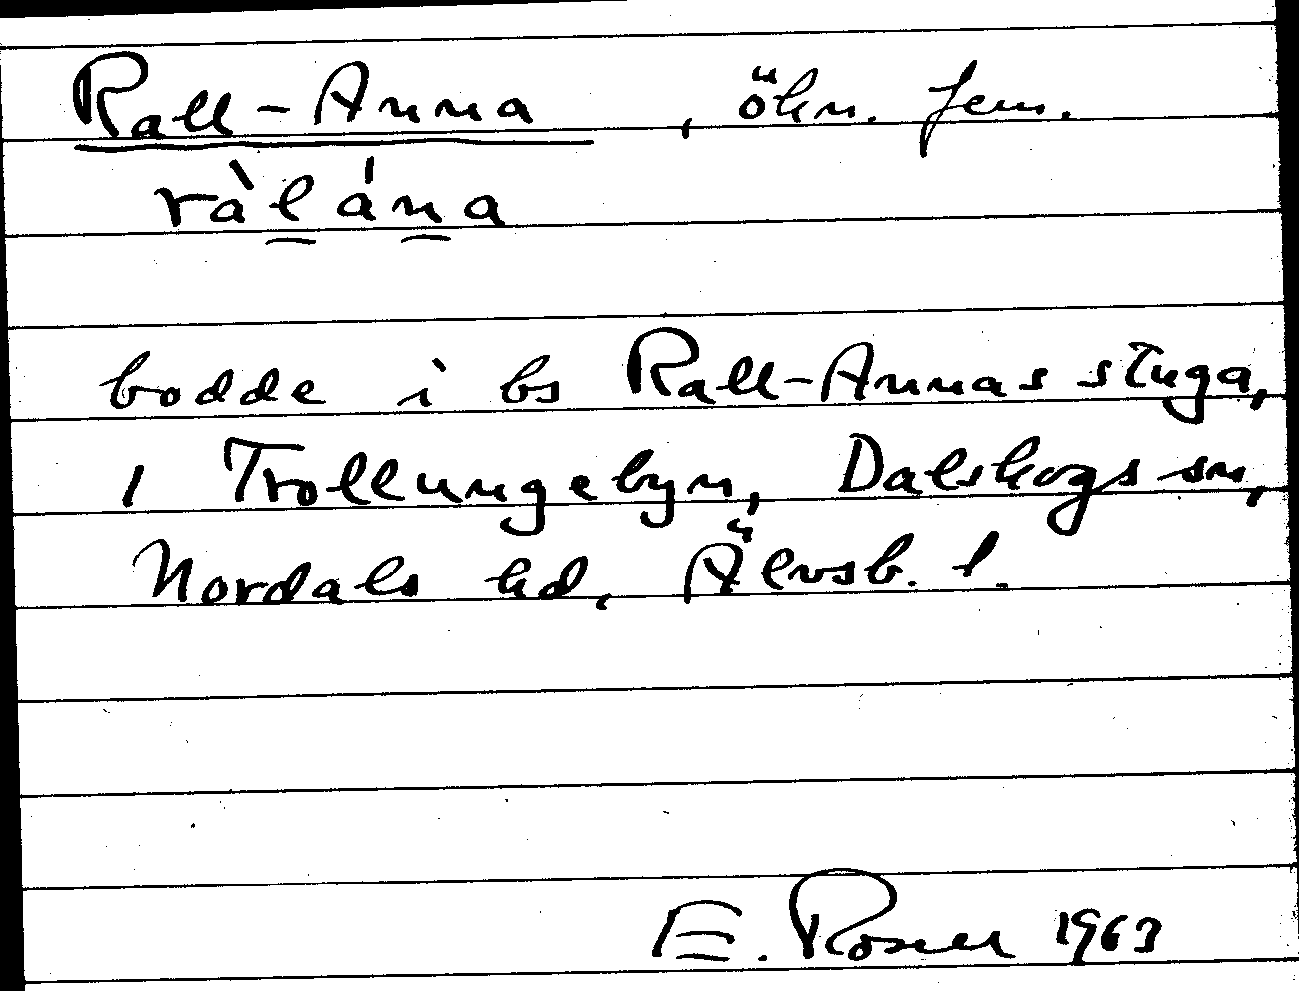 Rall-Anna, ökn. fem.
ràl̲án̲a
bodde i bs Rall-Annas stuga,
i Trollungebyn, Dalskogs sn,
Nordals hd, Älvsb. l.
E. Rosner 1963